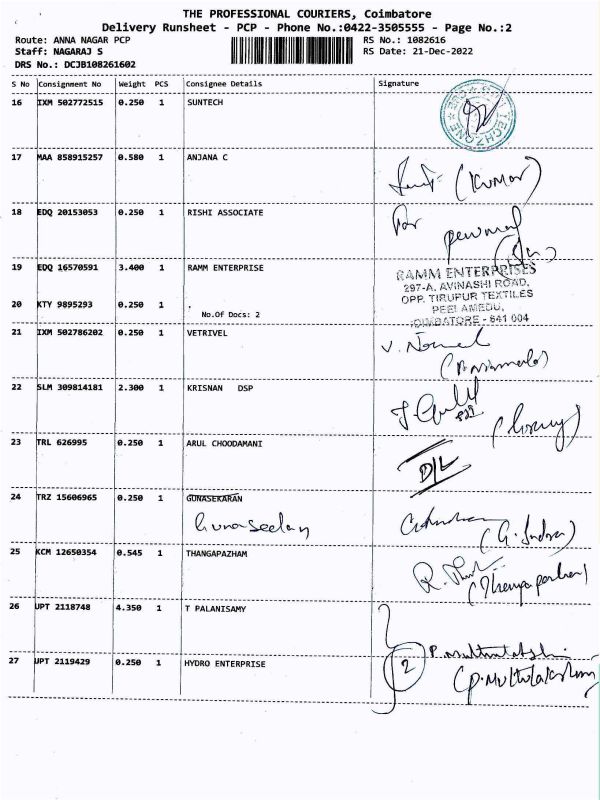 THE PROFESSIONAL COURIERS, Coimbatore
Delivery Runsheet - PCP - Phone No.:0422-3505555 - Page No.:2
Route: ANNA NAGAR PCP RS No.: 1082616
Staff: NAGARAJ S RS Date: 21-Dec-2022
DRS No.: DCJB108261602
S No Consignment No Weight PCS Consignee Details Signature
16 IXM 502772515 0.250 1 SUNTECH
TECHZONE
17 MAA 858915257 0.580 1 ANJANA C
(Kumar)
18 EDQ 20153053 0.250 1 RISHI ASSOCIATE
For
19 EDQ 16570591 3.400 1 RAMM ENTERPRISE
RAMM ENTERPRISES
297-A, AVINASHI ROAD,
OPP. TIRUPUR TEXTILES
PEELAMEDU,
COIMBATORE - 641 004
20 KTY 9895293 0.250 1 .
No.Of Docs: 2
21 IXM 502786202 0.250 1 VETRIVEL
22 SLM 309814181 2.300 1 KRISNAN DSP
23 TRL 626995 0.250 1 ARUL CHOODAMANI
D/L
24 TRZ 15606965 0.250 1 GUNASEKARAN
Gunaseelan
(G. Indra)
25 KCM 12650354 0.545 1 THANGAPAZHAM
26 UPT 2118748 4.350 1 T PALANISAMY
2
27 UPT 2119429 0.250 1 HYDRO ENTERPRISE